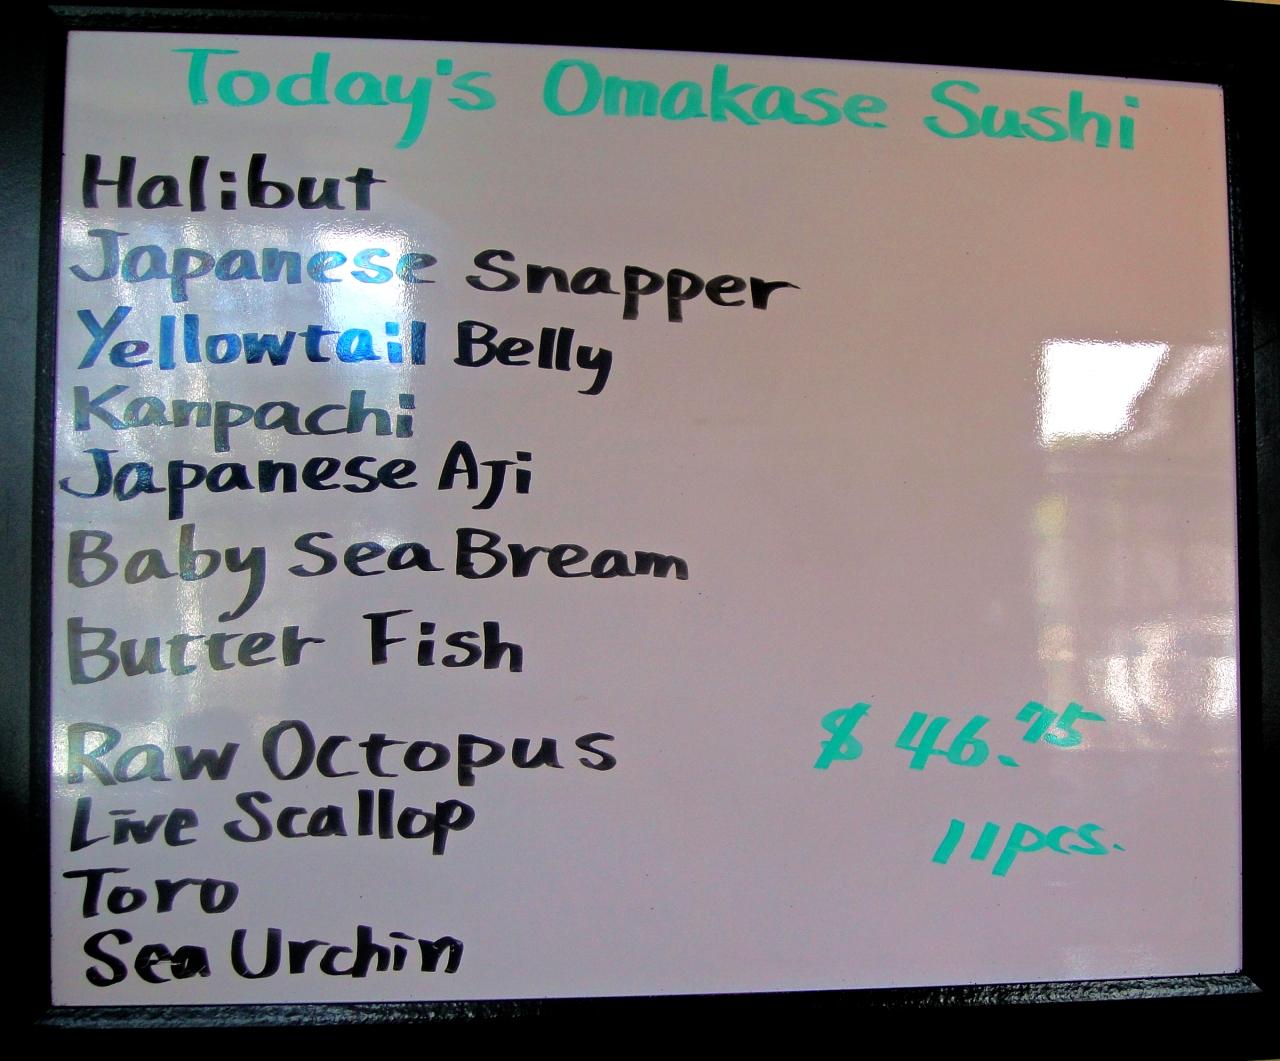 Today's Omakase Sushi
Halibut
Japanese Snapper
Yellowtail Belly
Kanpachi
Japanese Aji
Baby Sea Bream
Butter Fish
Raw Octopus
$ 46.75
Live Scallop
11pcs.
Toro
Sea Urchin